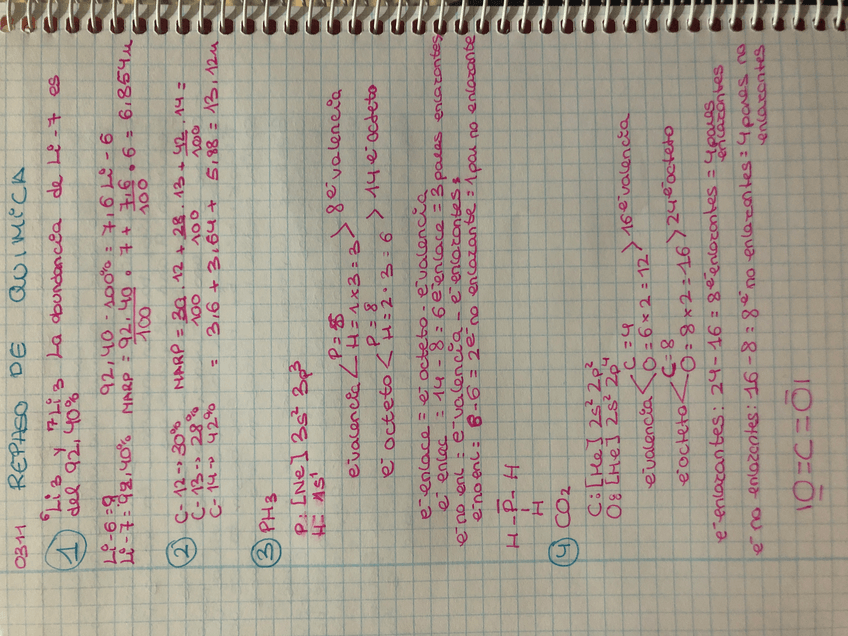 0311 REPASO DE QUIMICA
1 ⁶Li3 y ⁷Li3 La abundancia de Li-7 es
del 92,40%
Li-6=? 92,40-100%=7,6 Li-6
Li-7=92,40% MARP = 92,40/100 · 7 + 7,6/100 · 6 = 6,854u
2 C-12→30% MARP = 30/100 · 12 + 28/100 · 13 + 42/100 · 14 =
C-13→28%
C-14→42% = 3,6 + 3,64 + 5,88 = 13,12u
3 PH3
P: [Ne] 3s² 3p³
H= 1s¹
e⁻valencia < P=5 H=1x3=3 > 8 e⁻valencia
e⁻octeto < P=8 H=2·3=6 > 14 e⁻octeto
e⁻enlace = e⁻octeto - e⁻valencia
e⁻enlec = 14-8 = 6 e⁻enlace = 3 pares enlazantes
e⁻no enl = e⁻valencia - e⁻enlazantes
e⁻no enl = 8-6=2 e⁻no enlazante = 1 par no enlazante
H-P̄-H
|
H
4 CO2
C: [He] 2s² 2p²
O: [He] 2s² 2p⁴
e⁻valencia < C=4 O=6x2=12 > 16 e⁻valencia
e⁻octeto < C=8 O=8x2=16 > 24 e⁻octeto
e⁻enlazantes: 24-16=8 e⁻enlazantes = 4 pares
enlazantes
e⁻no enlazantes: 16-8=8 e⁻no enlazantes = 4 pares no
enlazantes
|O̲=C=Ō|